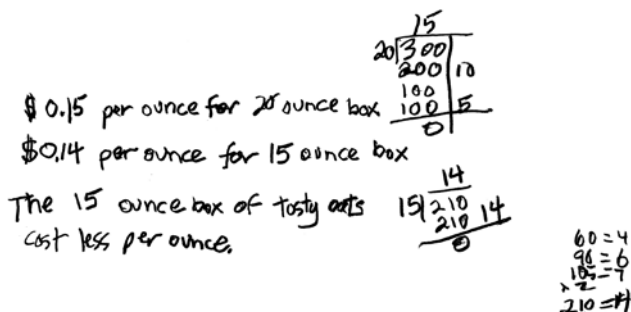 15
20 300
200 10
100
100 5
0
$0.15 per ounce for 20 ounce box
$0.14 per ounce for 15 ounce box
The 15 ounce box of tosty oats
cost less per ounce.
14
15 210
210 14
0
60=4
90=6
105=7
x 2
210=14